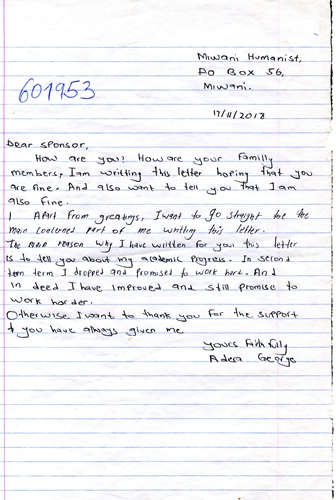 Miwani Humanist,
PO Box 56,
Miwani.
601953
17/11/2018
Dear sponsor,
How are you? How are your Familly
members, I am writting this letter hoping that you
are fine. And also want to tell you that I am
also fine.
Apart from greatings, I want to go straight to the
main concerned part of me writing this letter.
The main reason why I have written for you this letter
is to tell you about my academic progress. In second
term I dropped and promised to work hard. And
in deed I have improved and still promise to
work harder.
Otherwise I want to thank you for the support
you have always given me
yours Faithfully
Adera George